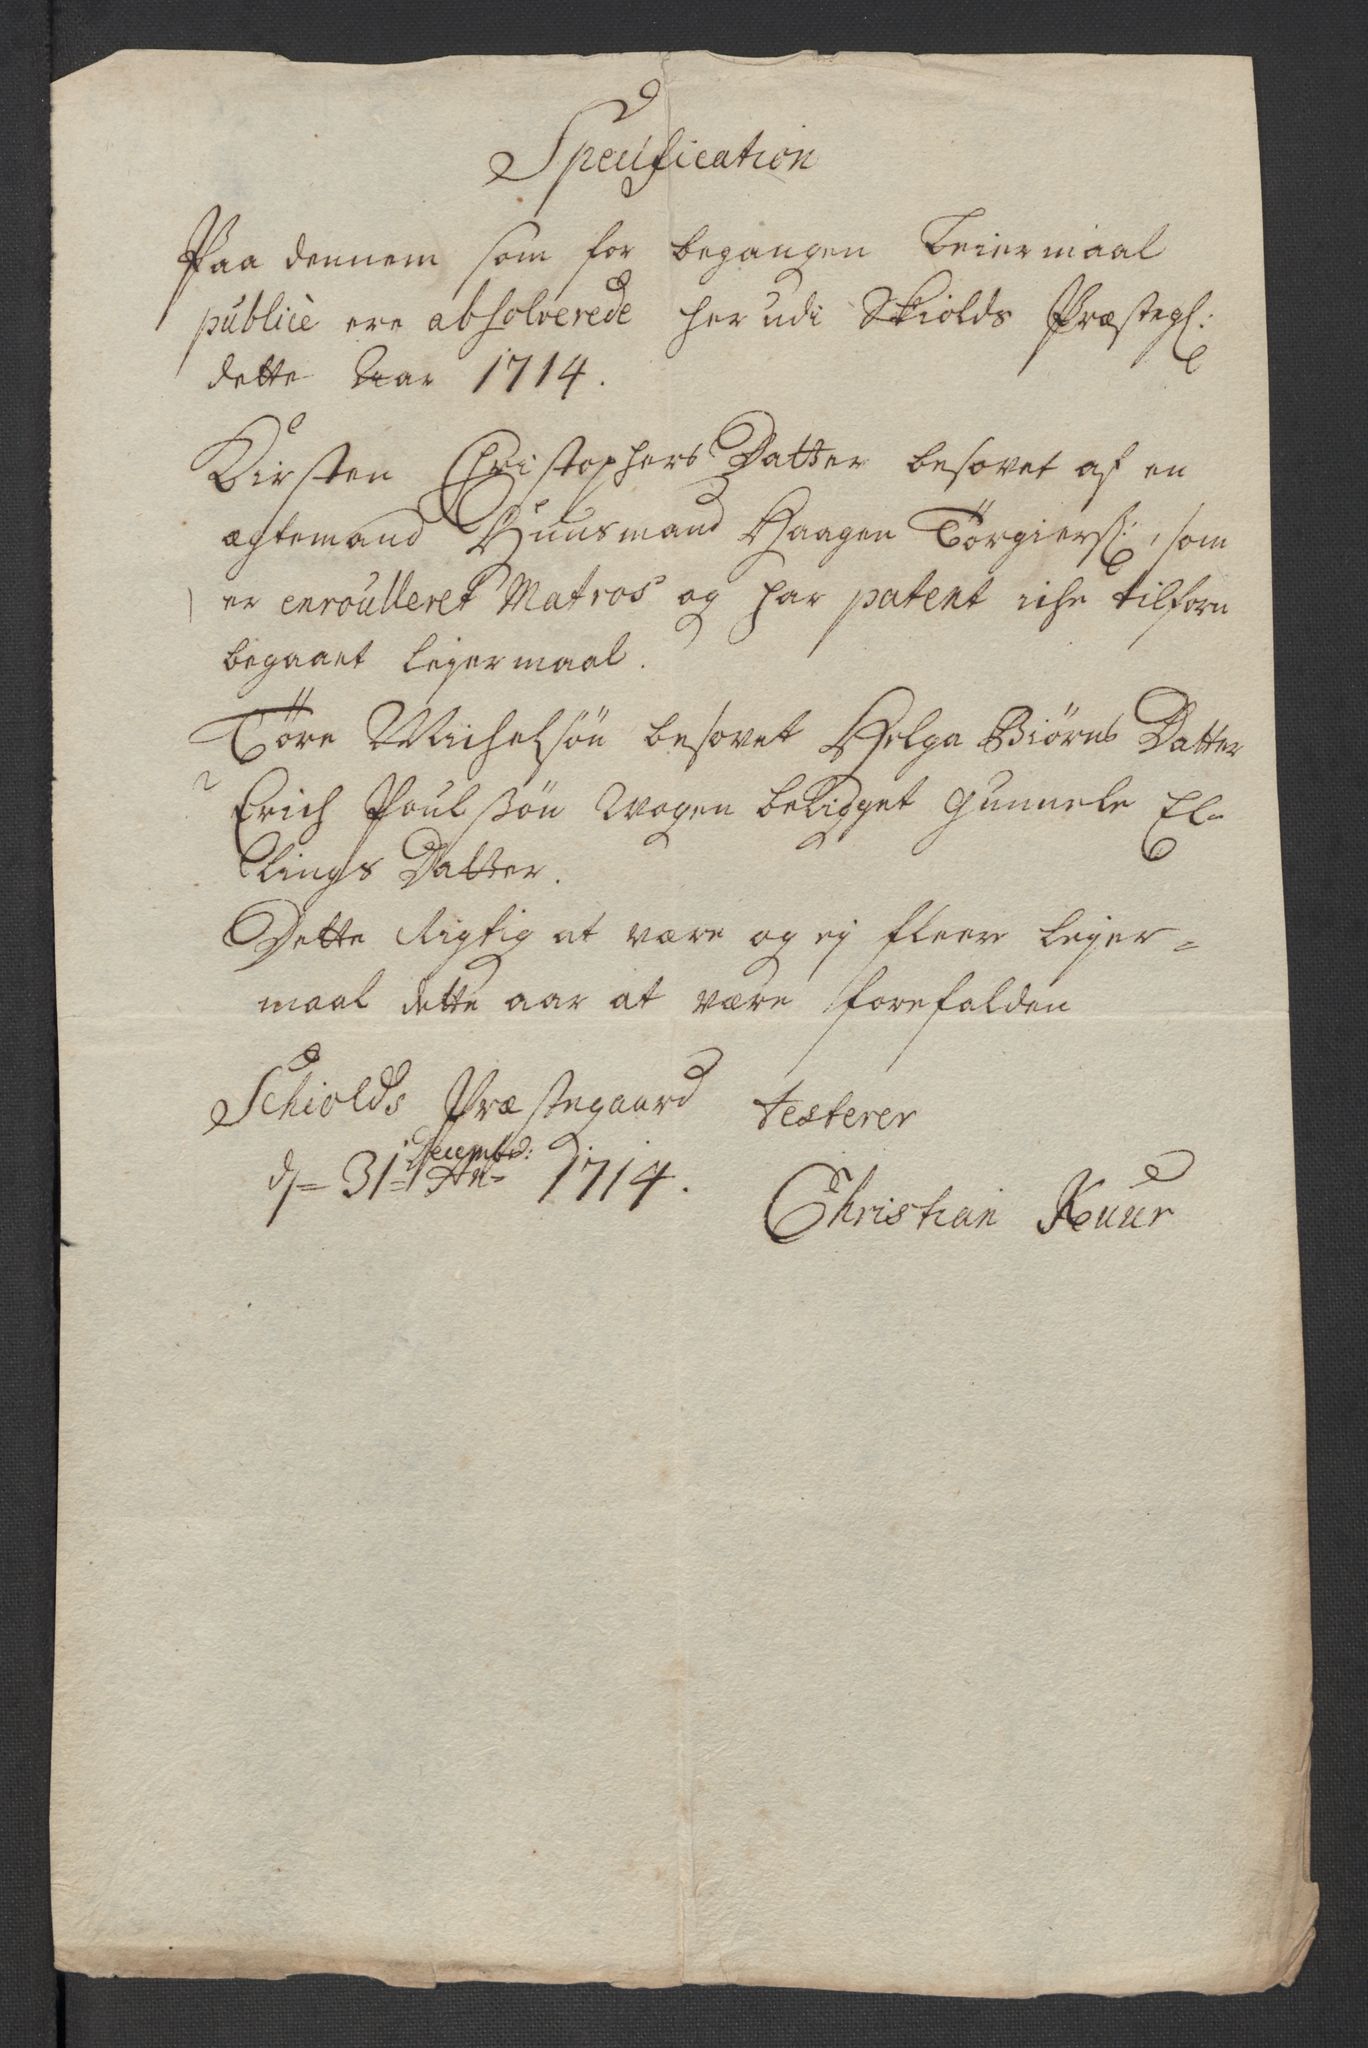 Specification
Paa dennem som for begangen Leiermaal
publicè ere absolverede her udi Skiolds Præstegl:
dette Aar 1714.
Kirsten Christophers Datter besovet af en
ægtemand Huusmand Haagen Törgiers: , som
er enroulleret Matros og har patent iche tilforn
begaaet lejermaal.
Töre Michelsön besovet Helga Biörns Datter
Erich Poulssön Wogen beligget Gunnele El-
lings Datter.
Dette Rigtig at være og ej fleere lejer-
maal dette aar at være forefalden
Schiolds Præstegaard testerer
d= 31 Decembr: 1714.
Christian Kuur